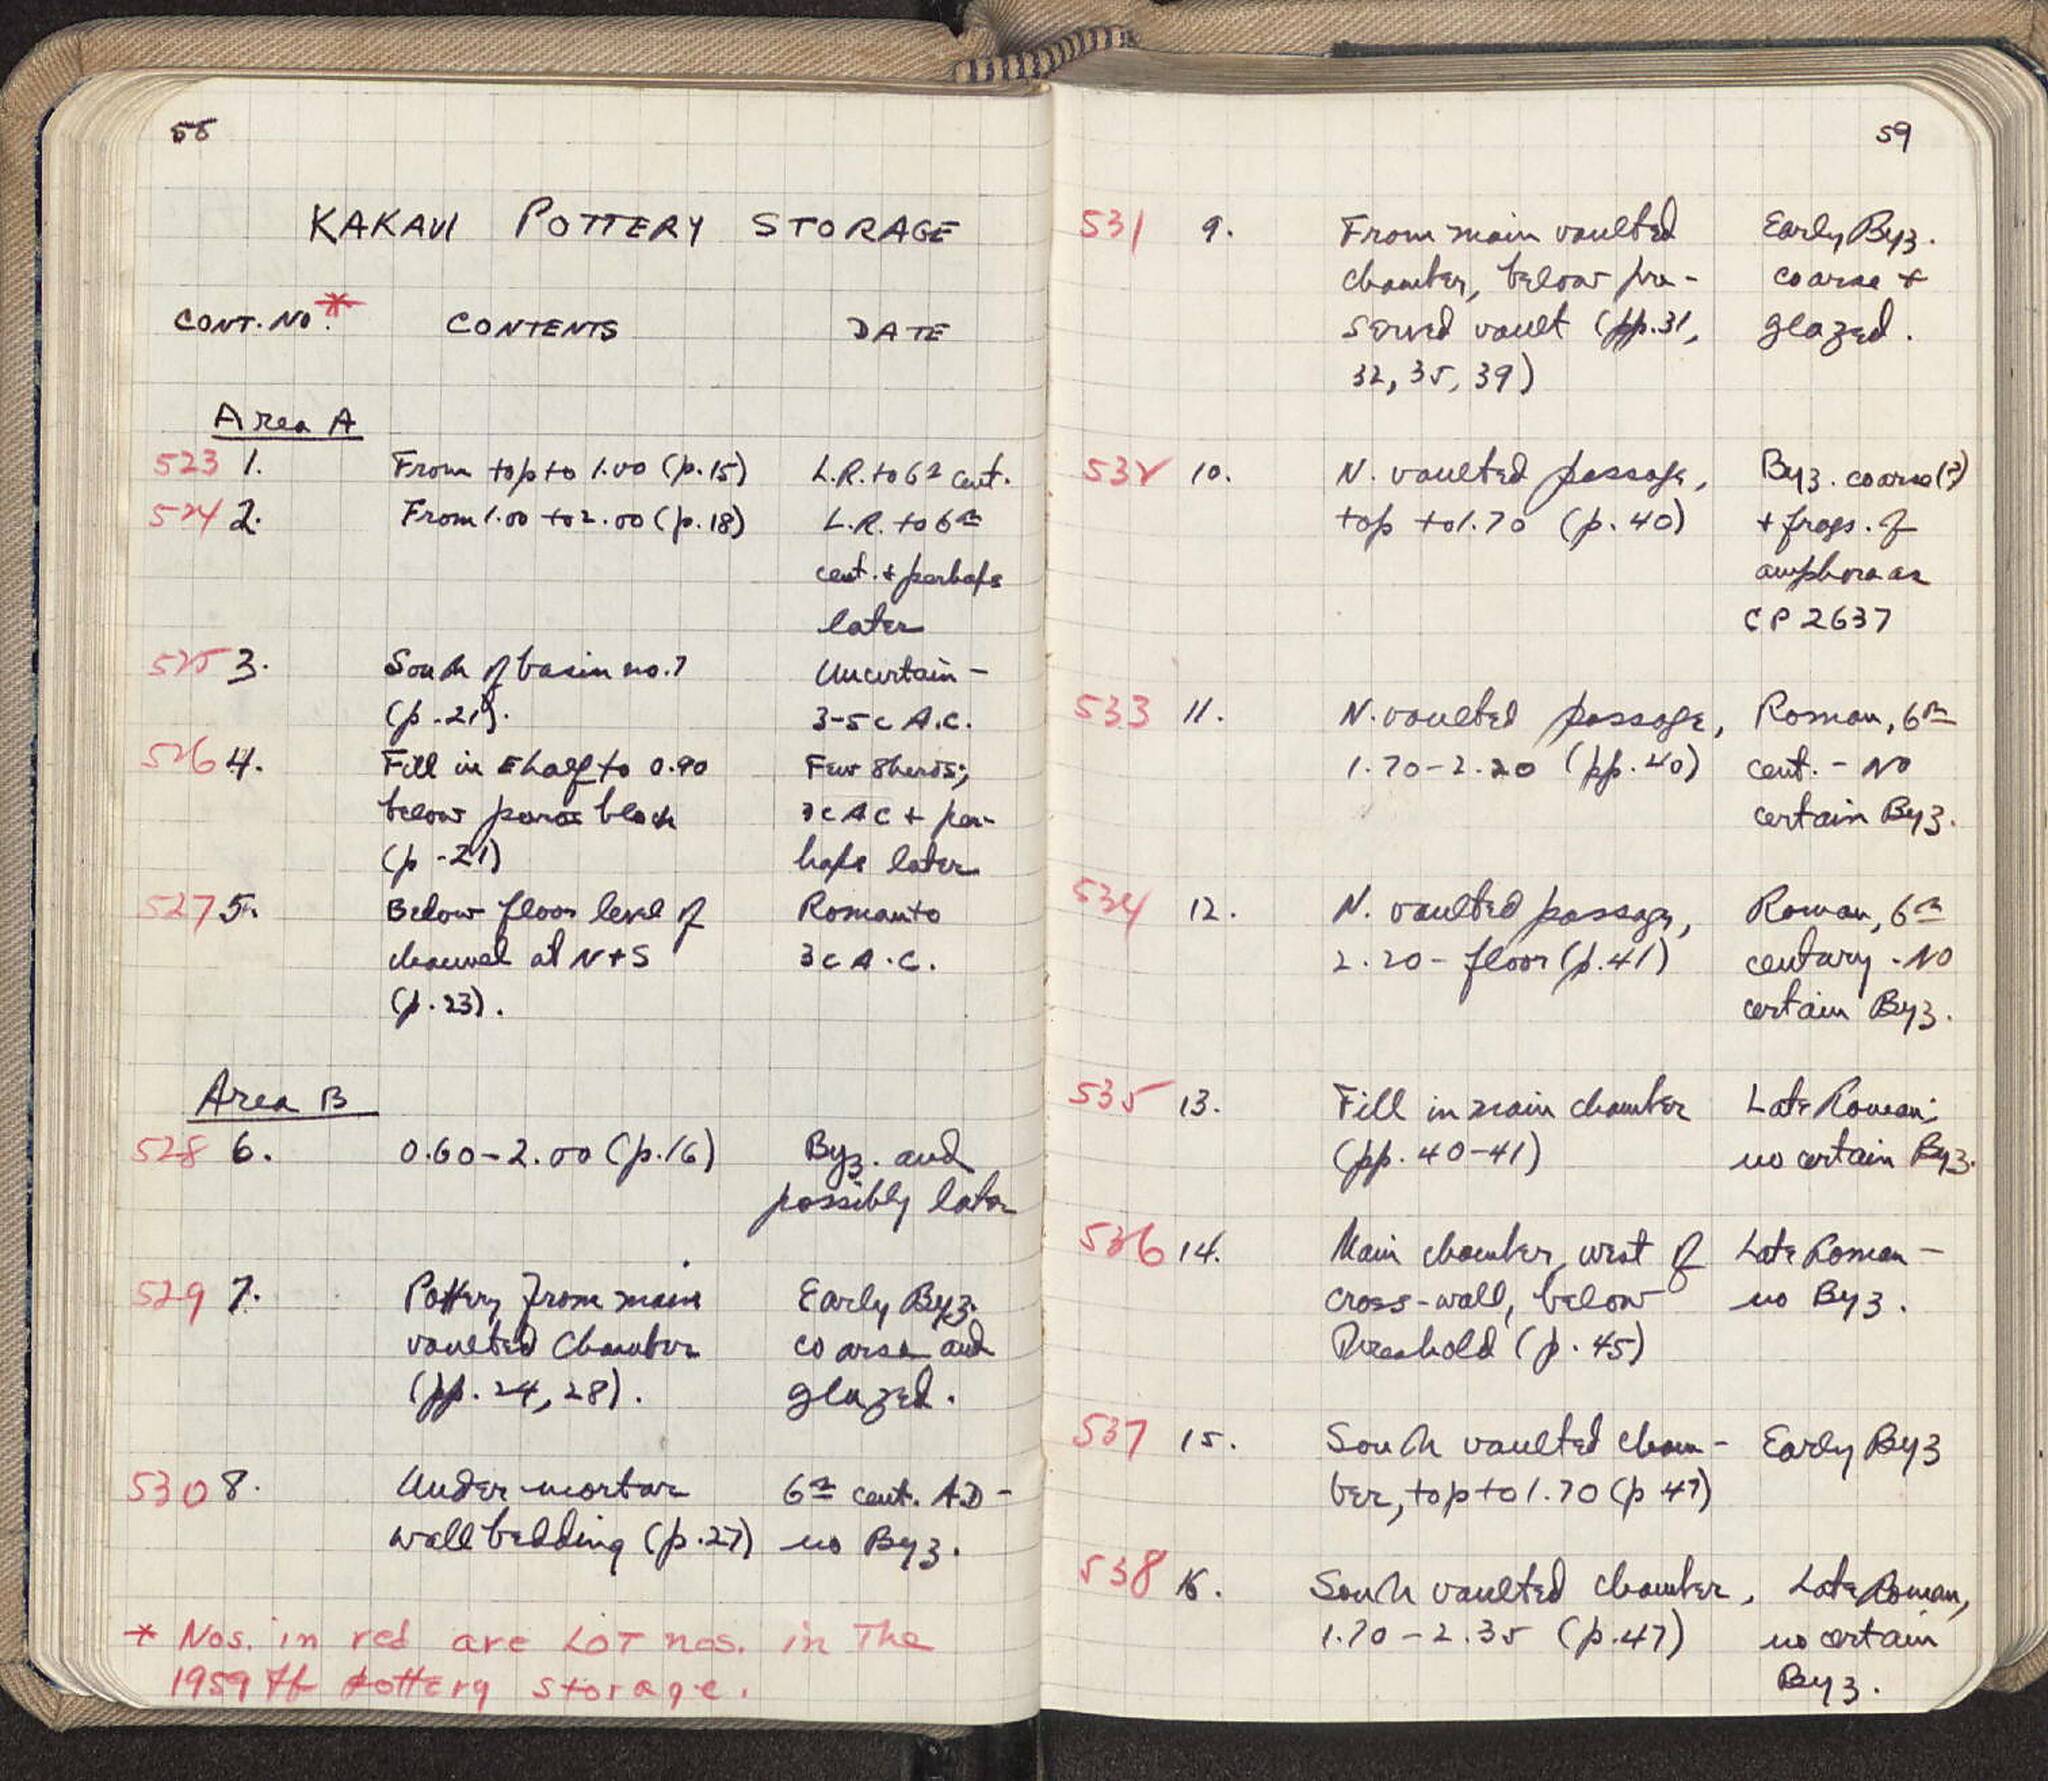 58
KAKAVI POTTERY STORAGE
CONT. NO.* CONTENTS DATE
Area A
523 1. From top to 1.00 (p.15) L.R. to 6th cent.
524 2. From 1.00 to 2.00 (p.18) L.R. to 6th
cent. + perhaps
later
525 3. South of basin no. 7 Uncertain –
(p. 21). 3-5c A.C.
526 4. Fill in E half to 0.90 Few sherds;
below poros block 3c AC + per-
(p. 21) haps later
527 5. Below floor level of Roman to
channel at N+S 3c A.C.
(p. 23).
Area B
528 6. 0.60 – 2.00 (p.16) Byz. and
possibly later
529 7. Pottery from main Early Byz.
vaulted chamber coarse and
(pp. 24, 28). glazed.
530 8. Under mortar 6th cent. A.D –
wall bedding (p.27) no Byz.
* Nos. in red are LOT nos. in the
1959 ff pottery storage.
59
531 9. From main vaulted Early Byz.
chamber, below pre- coarse +
served vault (pp. 31, glazed.
32, 35, 39)
532 10. N. vaulted passage, Byz. coarse (?)
top to 1.70 (p. 40) + frags. of
amphora as
CP 2637
533 11. N. vaulted passage, Roman, 6th
1.70 – 2.20 (pp. 40) cent. – No
certain Byz.
534 12. N. vaulted passage, Roman, 6th
2.20 – floor (p. 41) century – No
certain Byz.
535 13. Fill in main chamber Late Roman;
(pp. 40-41) no certain Byz.
536 14. Main chamber, west of Late Roman –
cross-wall, below no Byz.
threshold (p. 45)
537 15. South vaulted cham- Early Byz
ber, top to 1.70 (p 47)
538 16. South vaulted chamber, Late Roman,
1.70 – 2.35 (p. 47) no certain
Byz.